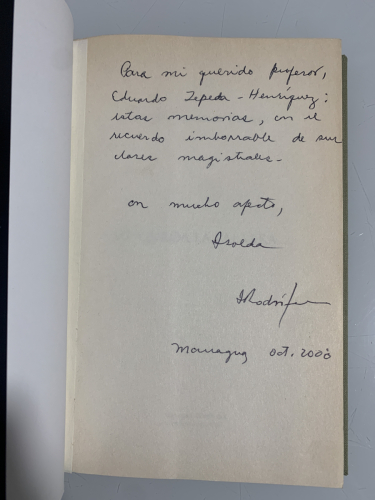 Para mi querido profesor,
Eduardo Zepeda-Henríquez;
estas memorias, con el
recuerdo imborrable de sus
clases magistrales-
con mucho afecto,
Isolda
IRodríg
Managua oct. 2000